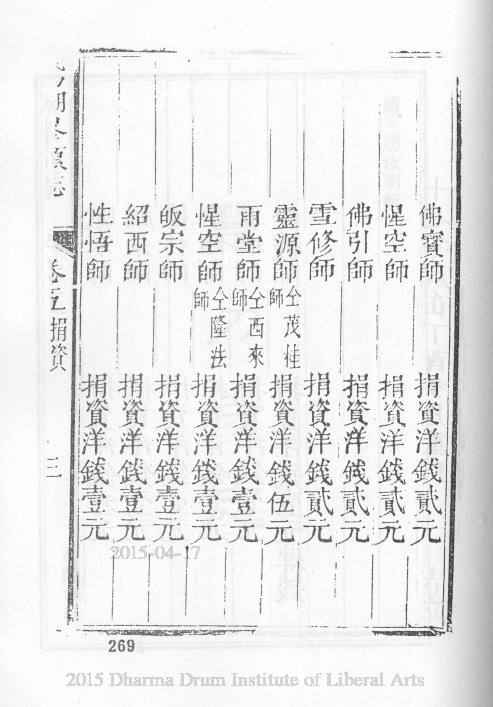 佛寶師 捐資洋錢貳元
惺空師 捐資洋錢貳元
佛引師 捐資洋錢貳元
雪修師 捐資洋錢貳元
靈源師 仝茂桂師 捐資洋錢伍元
雨堂師 仝西來師 捐資洋錢壹元
惺空師 仝隆法師 捐資洋錢壹元
皈宗師 捐資洋錢壹元
紹西師 捐資洋錢壹元
性悟師 捐資洋錢壹元
卷五 捐資 三
2015-04-17
269
2015 Dharma Drum Institute of Liberal Arts